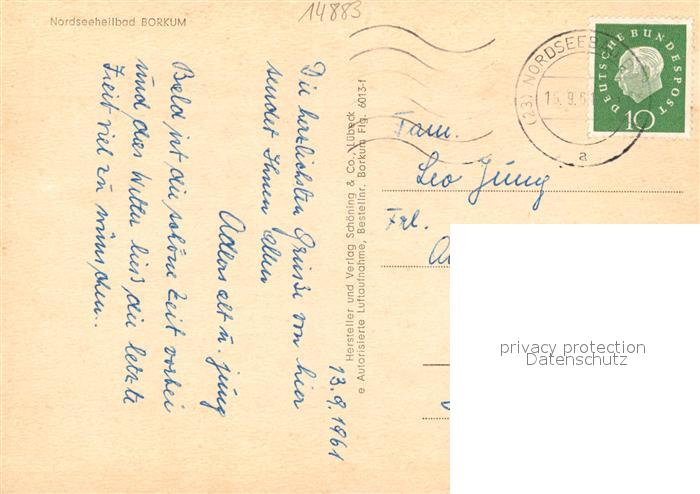 Nordseeheilbad BORKUM
14883
13.9.1961
Die herzlichsten Grüße von hier
sendet Ihnen allen
Adlers alt u. jung
Bald ist die schöne Zeit vorbei
und das Wetter ließ die letzte
Zeit viel zu wünschen..
Hersteller und Verlag Schöning & Co., Lübeck
e Autorisierte Luftaufnahme, Bestellnr. Borkum Flg. 6013-1
(23) NORDSEEB
15.9.6
a
DEUTSCHE BUNDESPOST
10
Fam.
Leo Jung
Frl.
privacy protection
Datenschutz